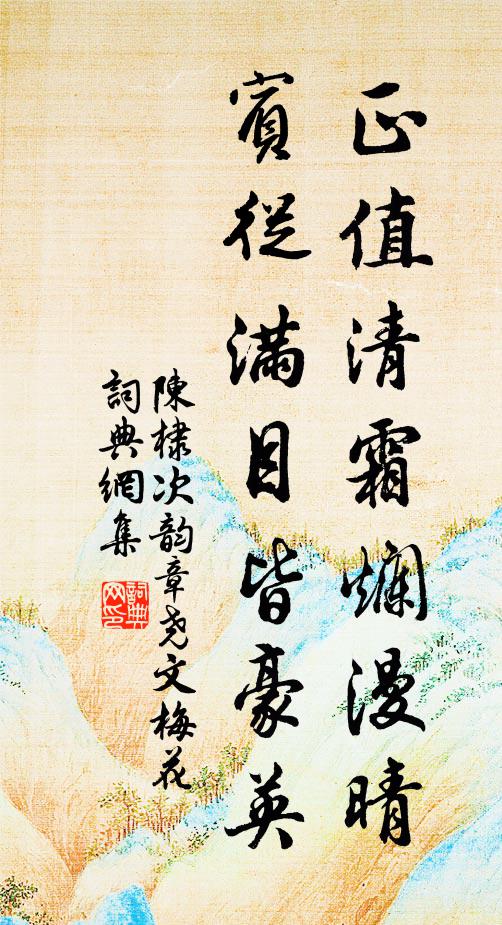 正值清霜爛漫晴
賓從滿目皆豪英
陳棣次韵章堯文梅花
詞典網集
詞典
网印